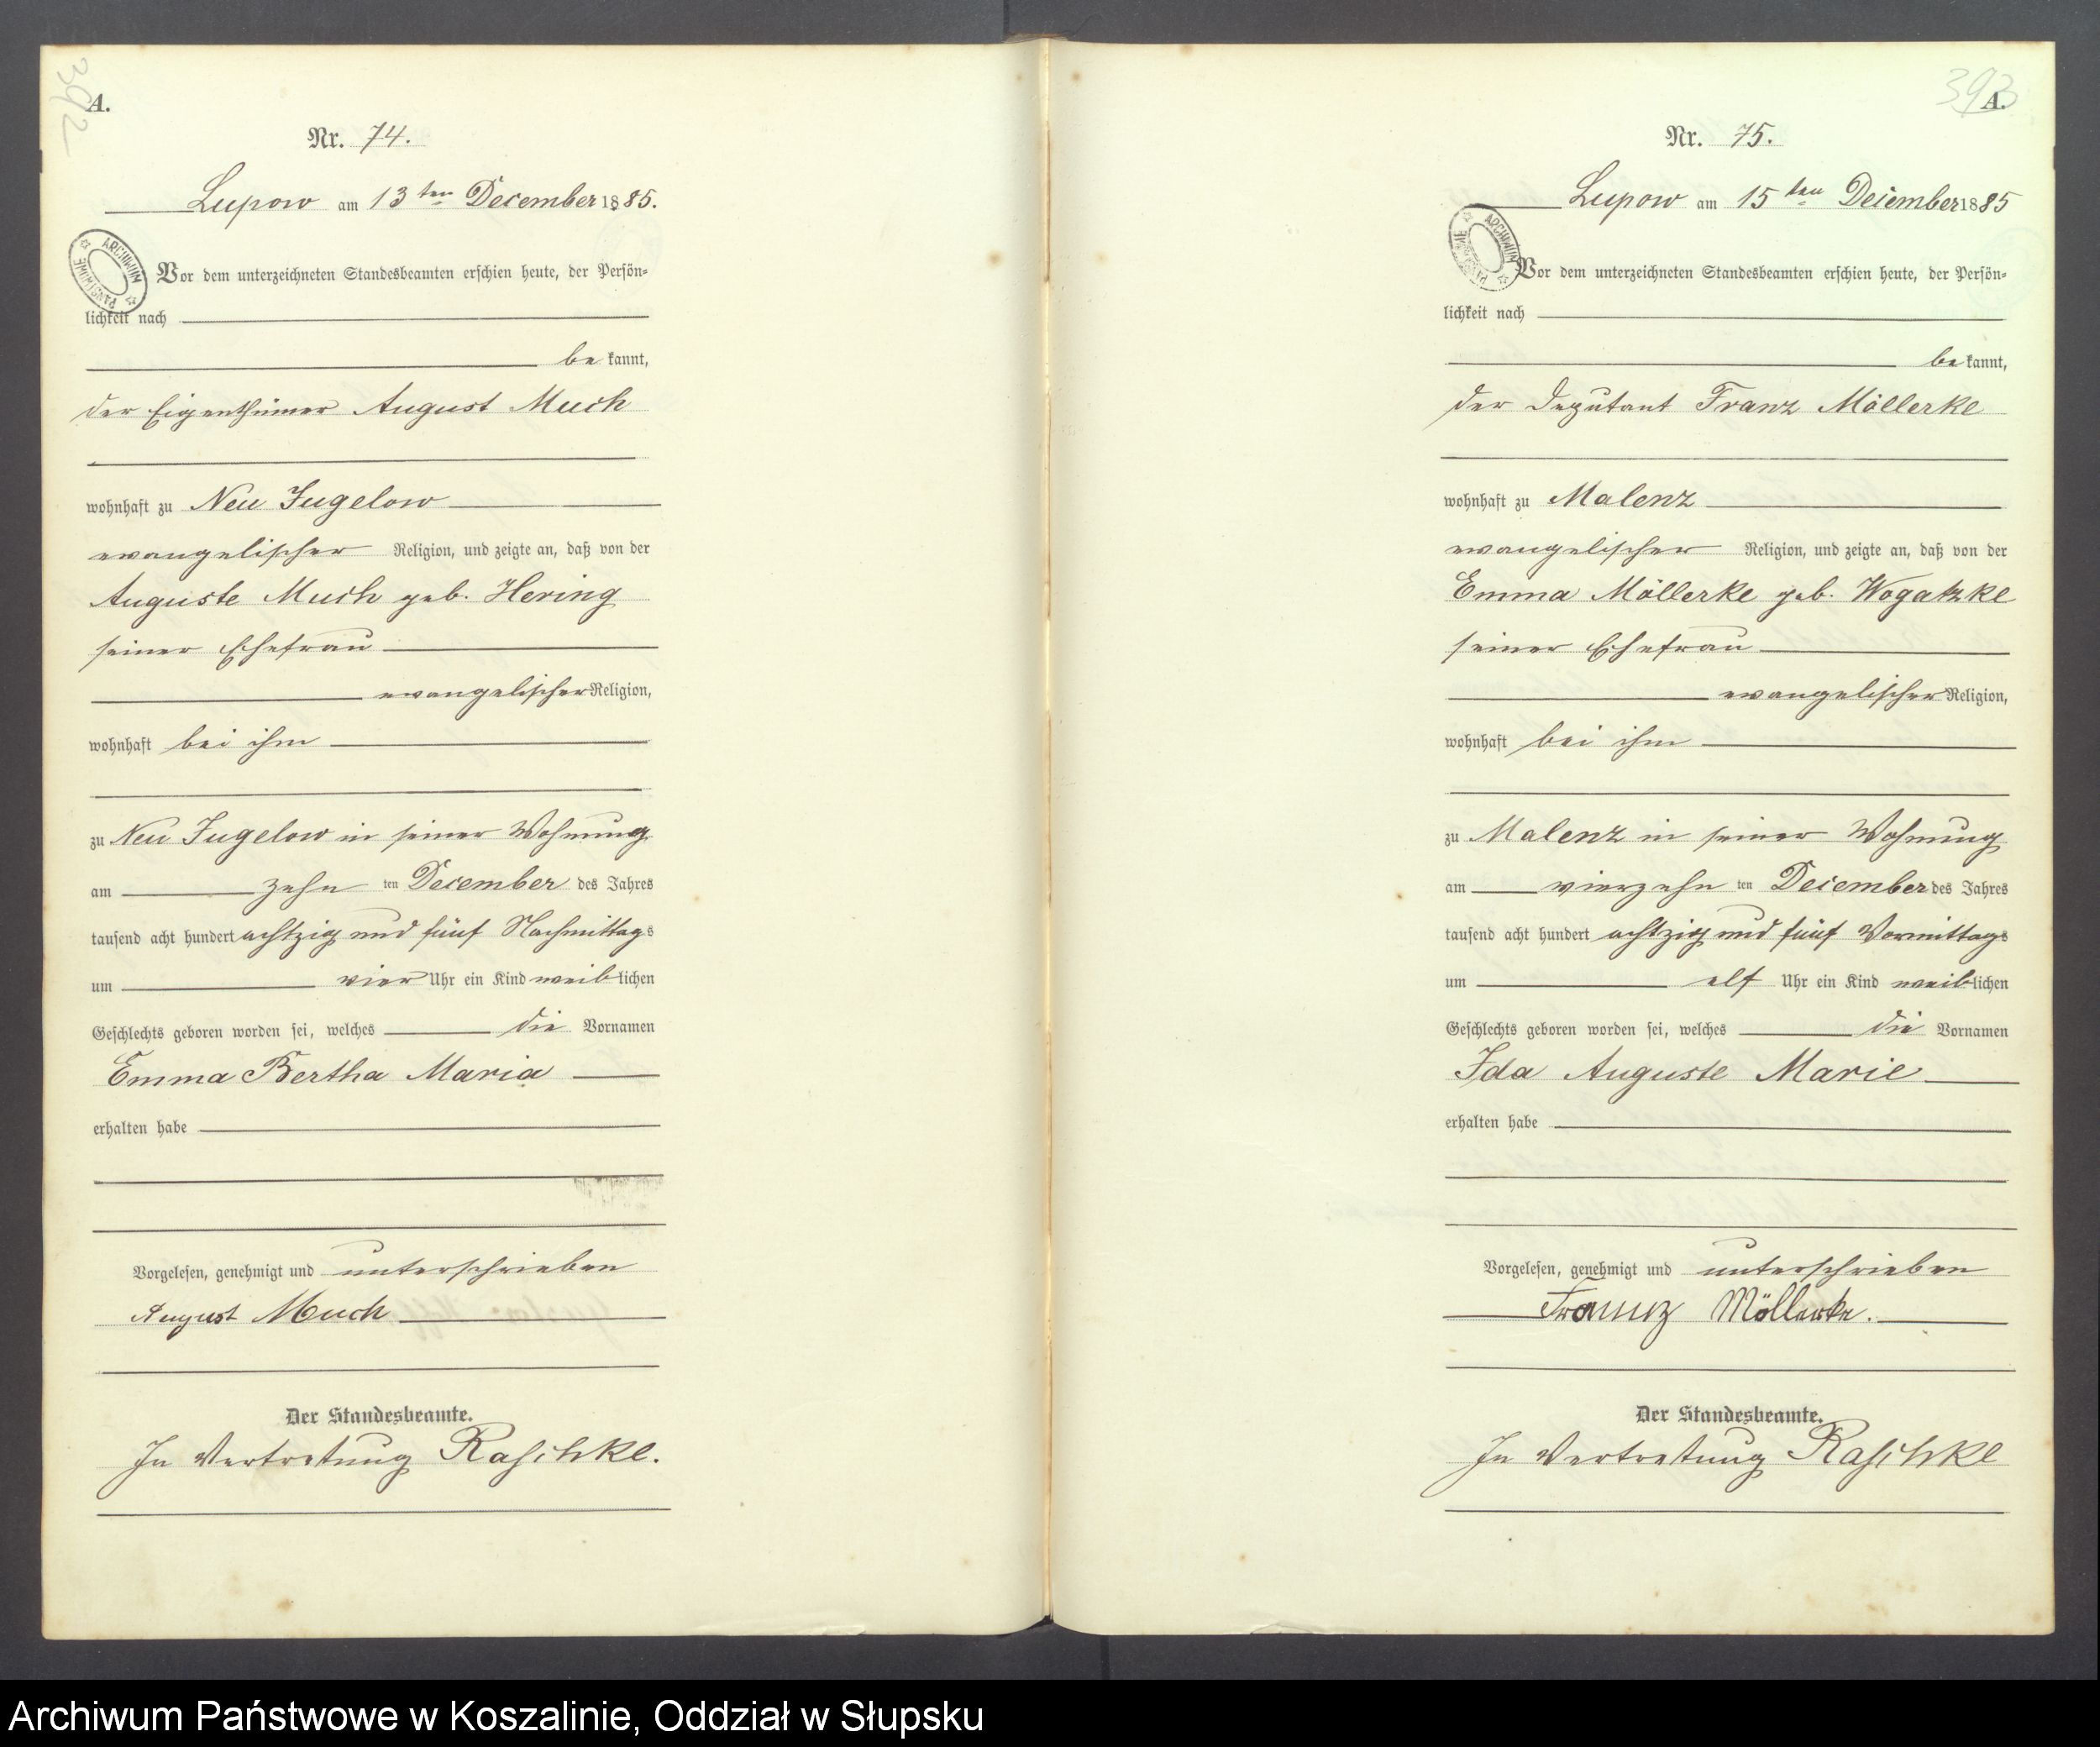 392
A.
Nr. 74.
Lupow am 13ten December 1885.
ARCHIWUM PAŃSTWOWE
Vor dem unterzeichneten Standesbeamten erschien heute, der Persön=
lichkeit nach
be kannt,
der Eigenthümer August Much
wohnhaft zu Neu Jugelow
evangelischer Religion, und zeigte an, daß von der
Auguste Much geb. Hering
seiner Ehefrau
evangelischer Religion,
wohnhaft bei ihm
zu Neu Jugelow in seiner Wohnung
am zehn ten December des Jahres
tausend acht hundert achtzig und fünf Nachmittags
um vier Uhr ein Kind weiblichen
Geschlechts geboren worden sei, welches die Vornamen
Emma Bertha Maria
erhalten habe
Vorgelesen, genehmigt und unterschrieben
August Much
Der Standesbeamte.
In Vertretung Raschke.
393
A.
Nr. 75.
Lupow am 15ten December 1885
ARCHIWUM PAŃSTWOWE
Vor dem unterzeichneten Standesbeamten erschien heute, der Persön=
lichkeit nach
be kannt,
der Deputant Franz Möllerke
wohnhaft zu Malenz
evangelischer Religion, und zeigte an, daß von der
Emma Möllerke geb. Wogatzke
seiner Ehefrau
evangelischer Religion,
wohnhaft bei ihm
zu Malenz in seiner Wohnung
am vierzehn ten December des Jahres
tausend acht hundert achtzig und fünf Vormittags
um elf Uhr ein Kind weiblichen
Geschlechts geboren worden sei, welches die Vornamen
Ida Auguste Marie
erhalten habe
Vorgelesen, genehmigt und unterschrieben
Frannz Möllerke.
Der Standesbeamte.
In Vertretung Raschke
Archiwum Państwowe w Koszalinie, Oddział w Słupsku